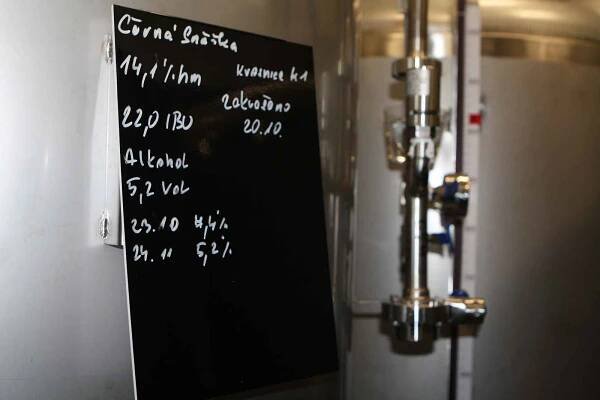 Černá Sněžka
14,1 % hm
Kvasnice k1
Zakvašeno
22,0 IBU
20.10.
Alkohol
5,2 Vol
23.10 4,4%
24.11 5,2%